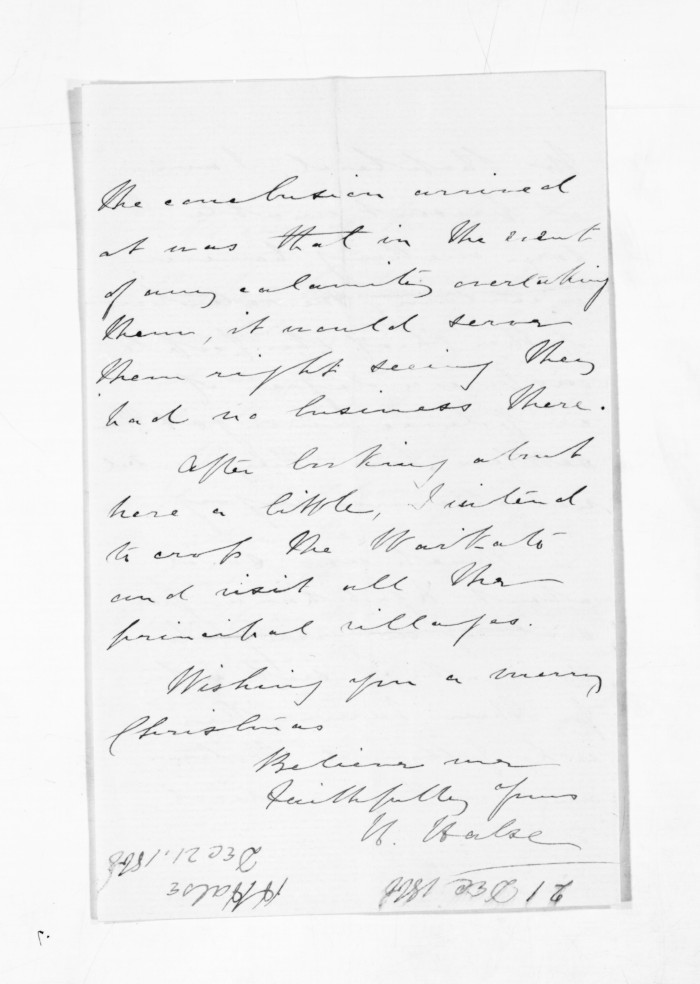 The conclusion arrived
at was that in the event
of any calamity overtaking
them, it would serve
them right seeing they
had no business there.
After looking about
here a little, I intend
to cross the Waikato
and visit all the
principal villages.
Wishing you a merry
Christmas
Believe me
Faithfully yours
H. Halse
21 Dec 1868
H Halse
Dec 21. 1868